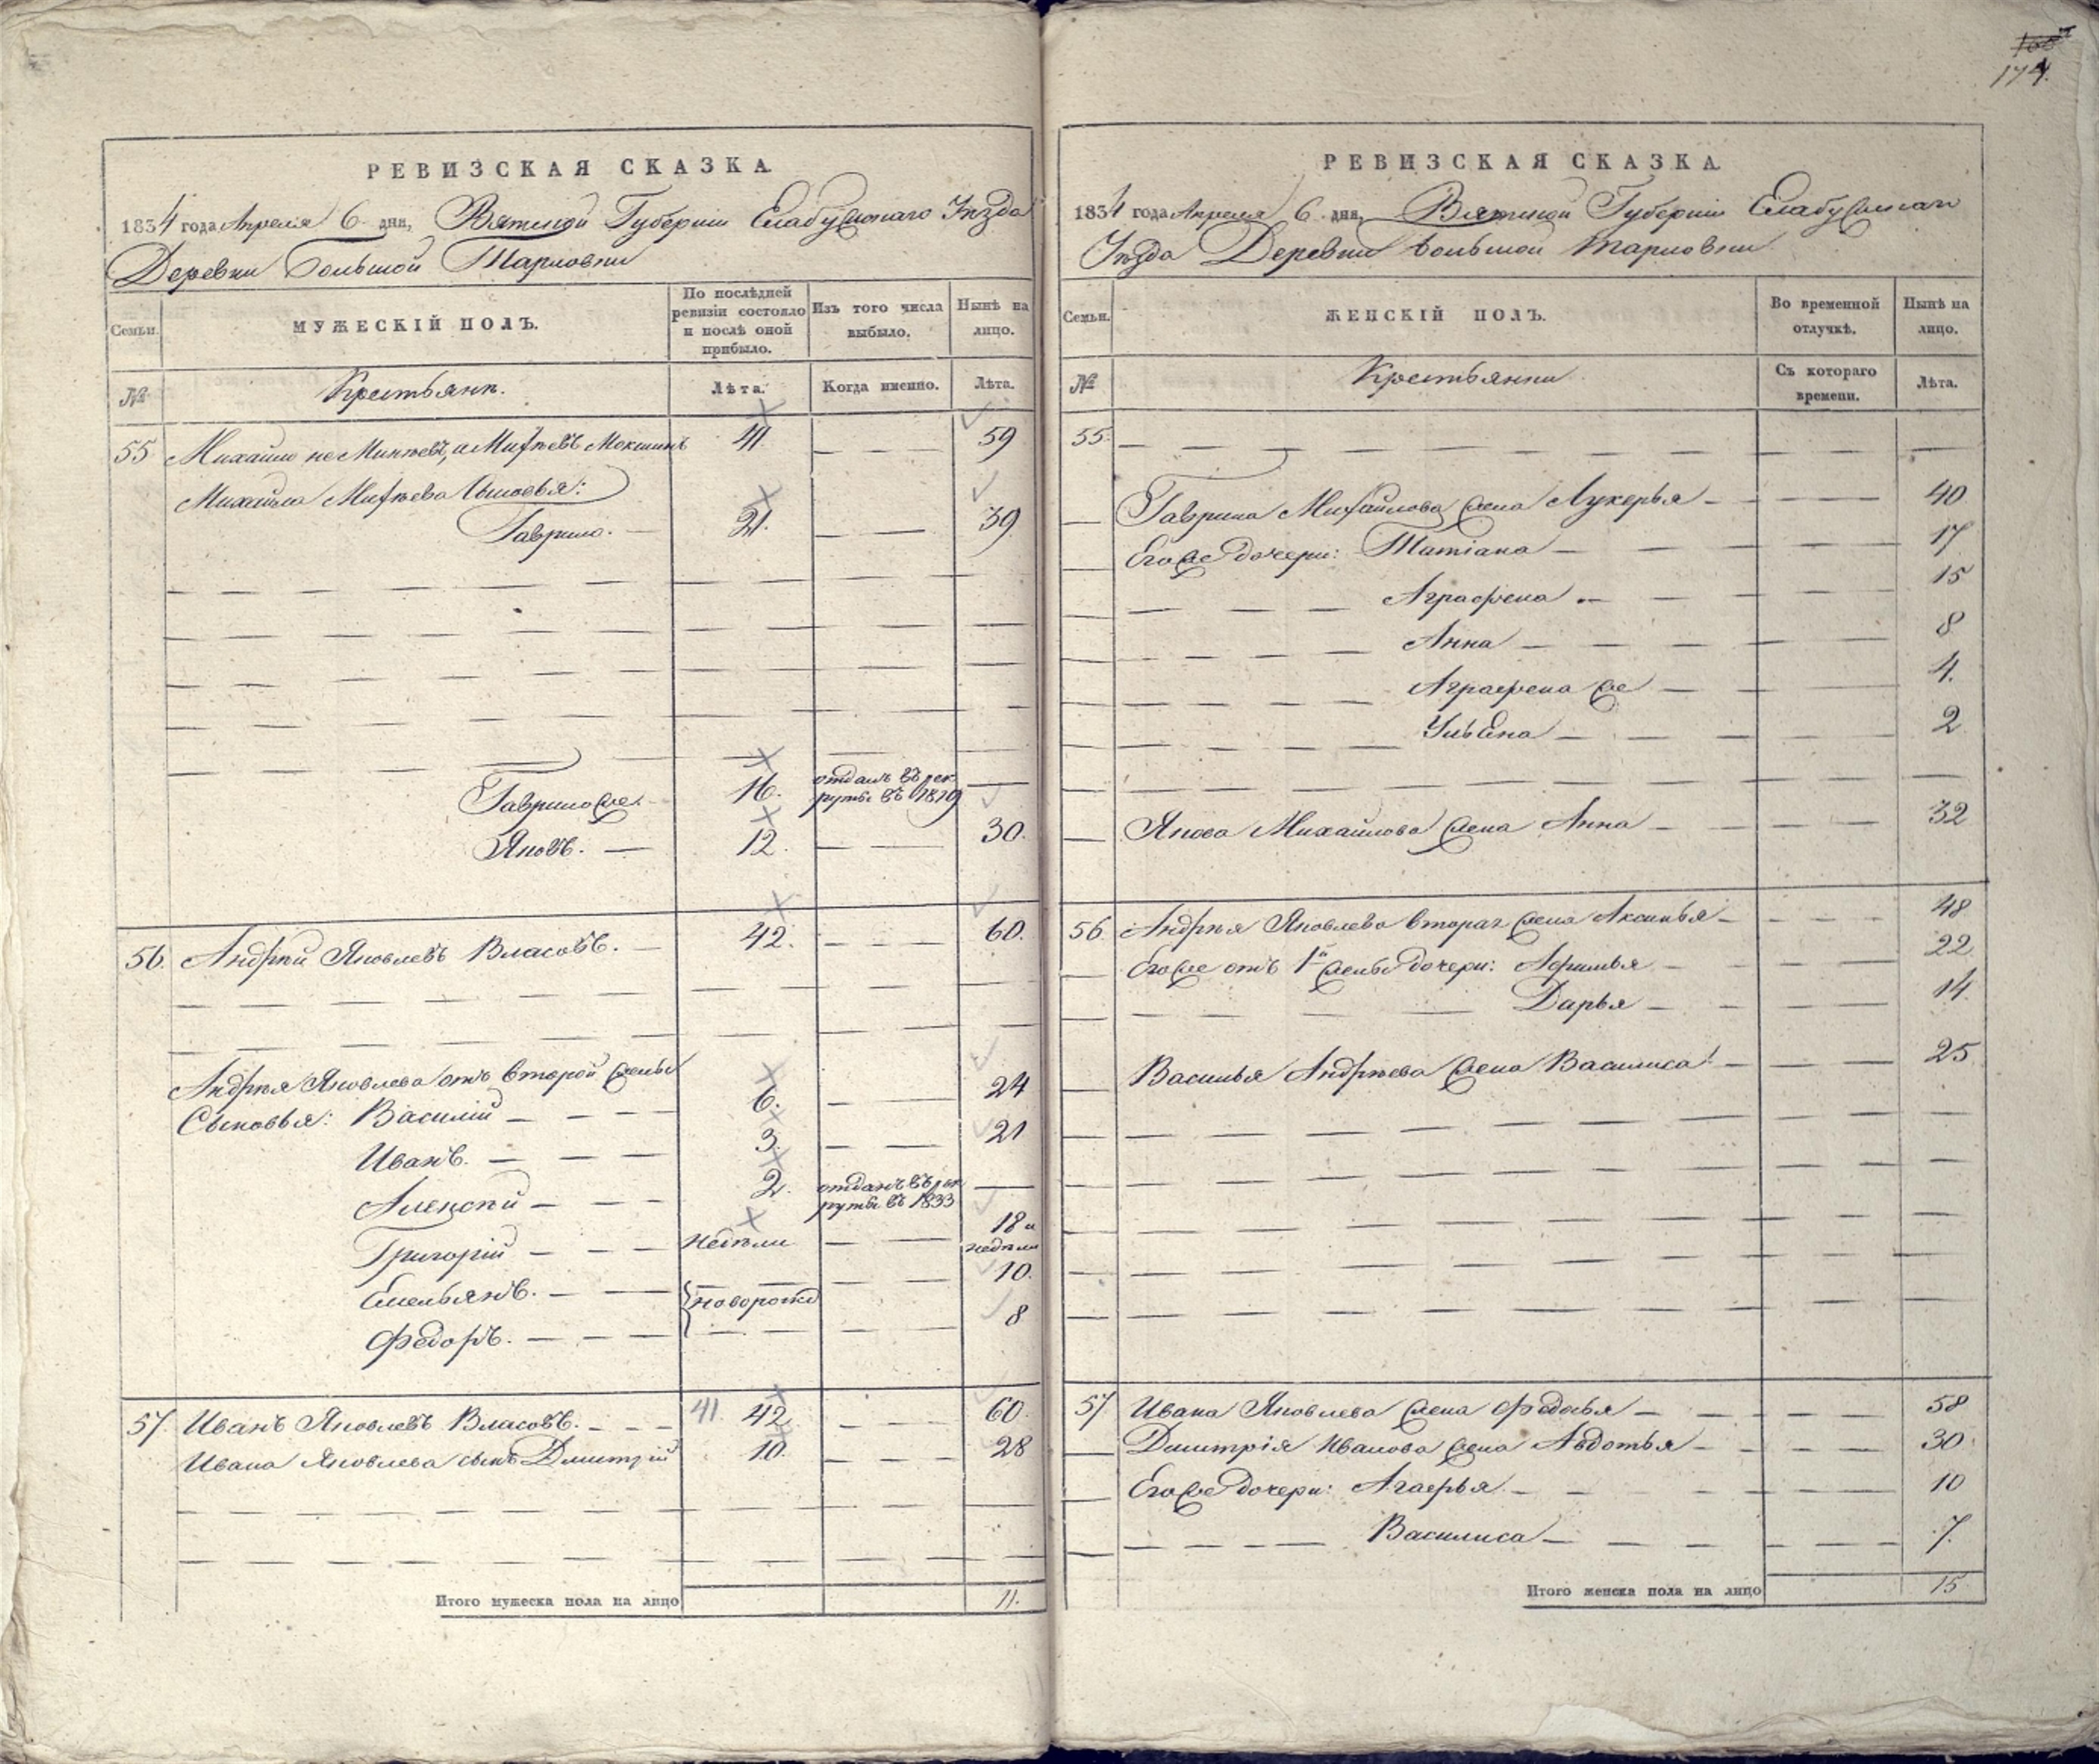 168
174.
РЕВИЗСКАЯ СКАЗКА
1834 года Апреля 6 дня, Вятской Губернiи Елабужскаго Уѣзда
Деревни Большой Тарловки
Семьи.
МУЖЕСКIЙ ПОЛЪ.
По послѣдней ревизiи состояло и послѣ оной прибыло.
Изъ того числа выбыло.
Нынѣ на лицо.
№
Крестьянѣ.
Лѣта.
Когда именно.
Лѣта.
55 Михайло не Минѣевъ, а Михѣевъ Мокшинъ 41. 59
Михайла Михѣева Сыновья:
Гаврило. 21. 39
Гаврило же. 16. отданъ въ рек
руты въ 1819
Яковъ. 12. 30.
56. Андрѣй Яковлевъ Власовъ. 42. 60.
Андрѣя Яковлева отъ второй жены
Сыновья: Василiй 6. 24
Иванъ. 3. 21
Алексѣй 2. отданъ въ рек
руты въ 1833
Григорiй недѣли 18 и
недѣли
Емельянъ. новорожд 10.
Федоръ. 8
57. Иванъ Яковлевъ Власовъ. 41. 42. 60.
Ивана Яковлева сынъ Дмитрiй 10. 28
Итого мужеска пола на лицо 11.
РЕВИЗСКАЯ СКАЗКА
1834 года Апреля 6 дня, Вятской Губернiи Елабужскаго
Уѣзда Деревни Большой Тарловки
Семьи.
ЖЕНСКIЙ ПОЛЪ.
Во временной отлучкѣ.
Нынѣ на лицо.
№
Крестьянки
Съ котораго времени.
Лѣта.
55.
Гаврила Михайлова жена Лукерья 40
Его же дочери: Татiана 17
Аграфена 15
Анна 8
Аграфена же 4.
Ульяна 2
Якова Михайлова жена Анна 32
56. Андрѣя Яковлева вторая жена Аксинья 48
Его же отъ 1й жены дочери: Афимья 22
Дарья 14.
Василья Андрѣева жена Василиса 25
57 Ивана Яковлева жена Федосья 58
Дмитрiя Иванова жена Авдотья 30
Его же дочери: Агафья 10
Василиса 7.
Итого женска пола на лицо 15